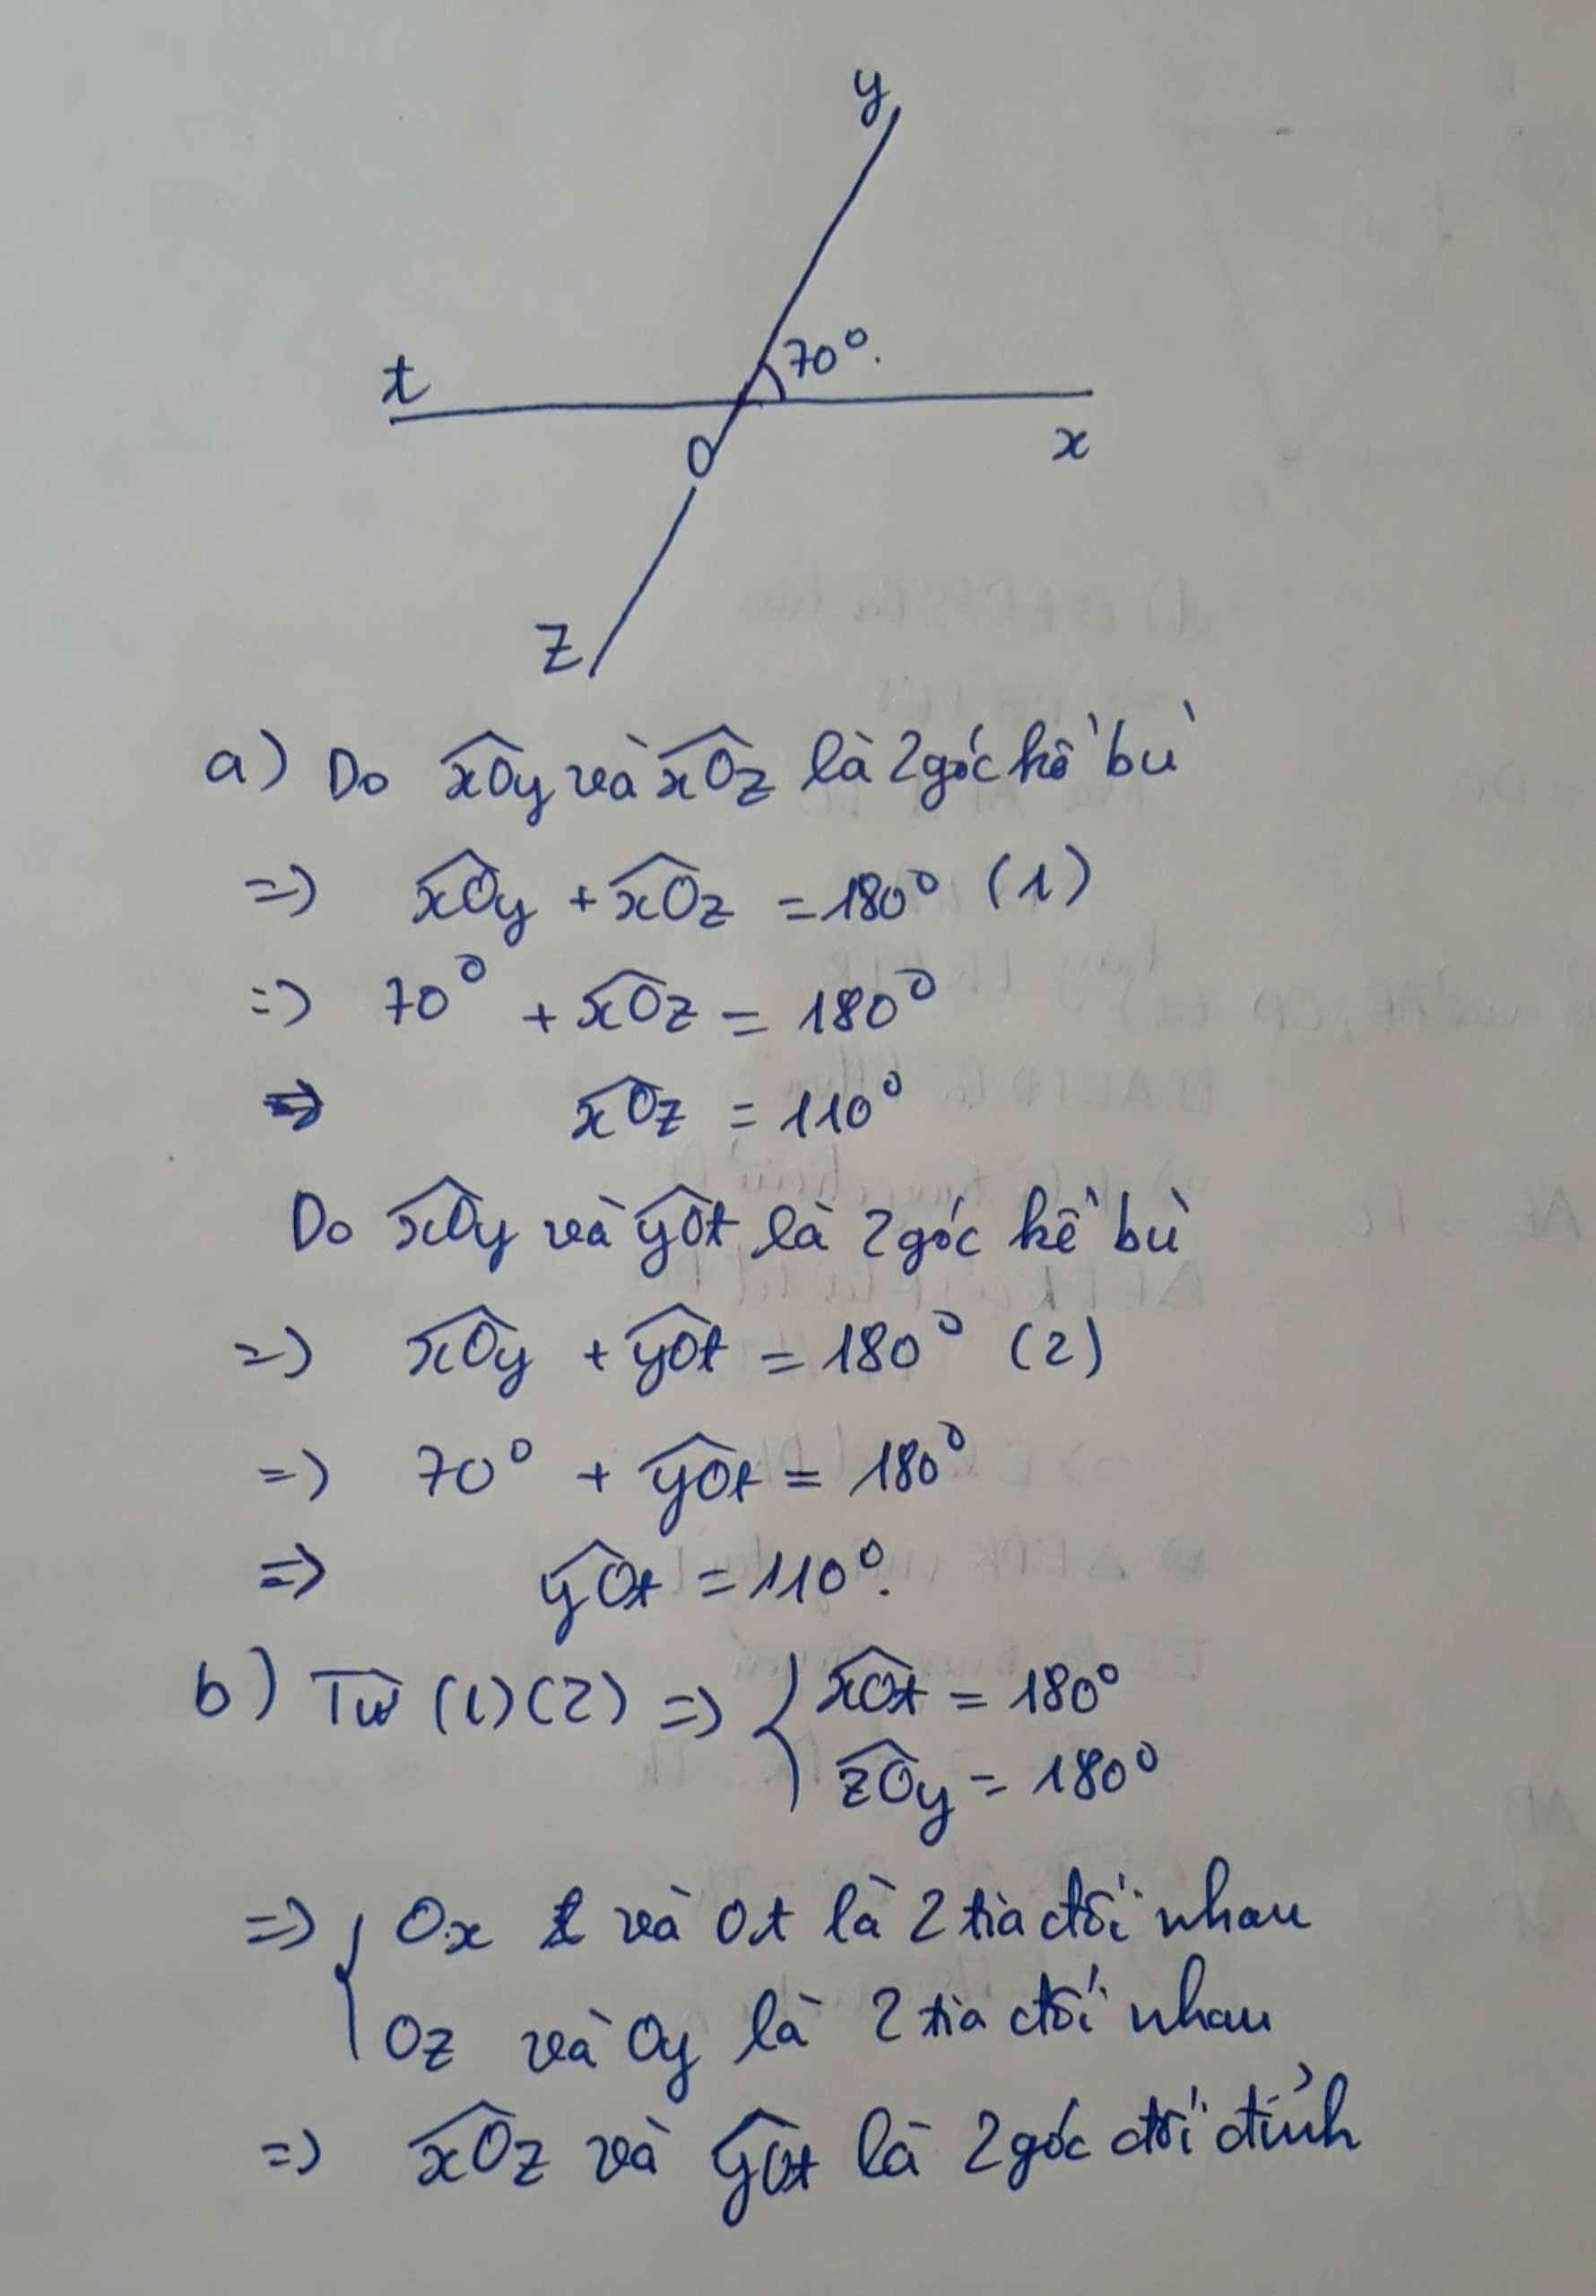 y
70°.
t
x
O
z
a) Do xOy và xOz là 2 góc kề bù
=> xOy + xOz = 180° (1)
=> 70° + xOz = 180°
=> xOz = 110°
Do xOy và yOt là 2 góc kề bù
=> xOy + yOt = 180° (2)
=> 70° + yOt = 180°
=> yOt = 110°.
b) Từ (1)(2) => { xOt = 180°
zOy = 180°
=> { Ox và Ot là 2 tia đối nhau
Oz và Oy là 2 tia đối nhau
=> xOz và yOt là 2 góc đối đỉnh